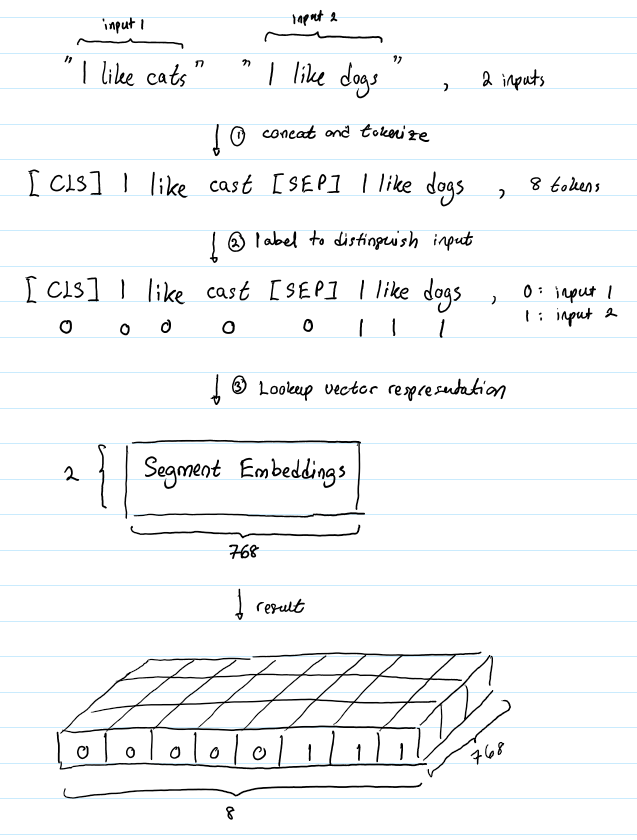 input 1 input 2
"I like cats" "I like dogs" , 2 inputs
① concat and tokenize
[CLS] I like cast [SEP] I like dogs , 8 tokens
② label to distinguish input
[CLS] I like cast [SEP] I like dogs , 0: input 1
0 0 0 0 0 1 1 1 1: input 2
③ Lookup vector respresentation
2 Segment Embeddings
768
result
0 0 0 0 0 1 1 1
768
8